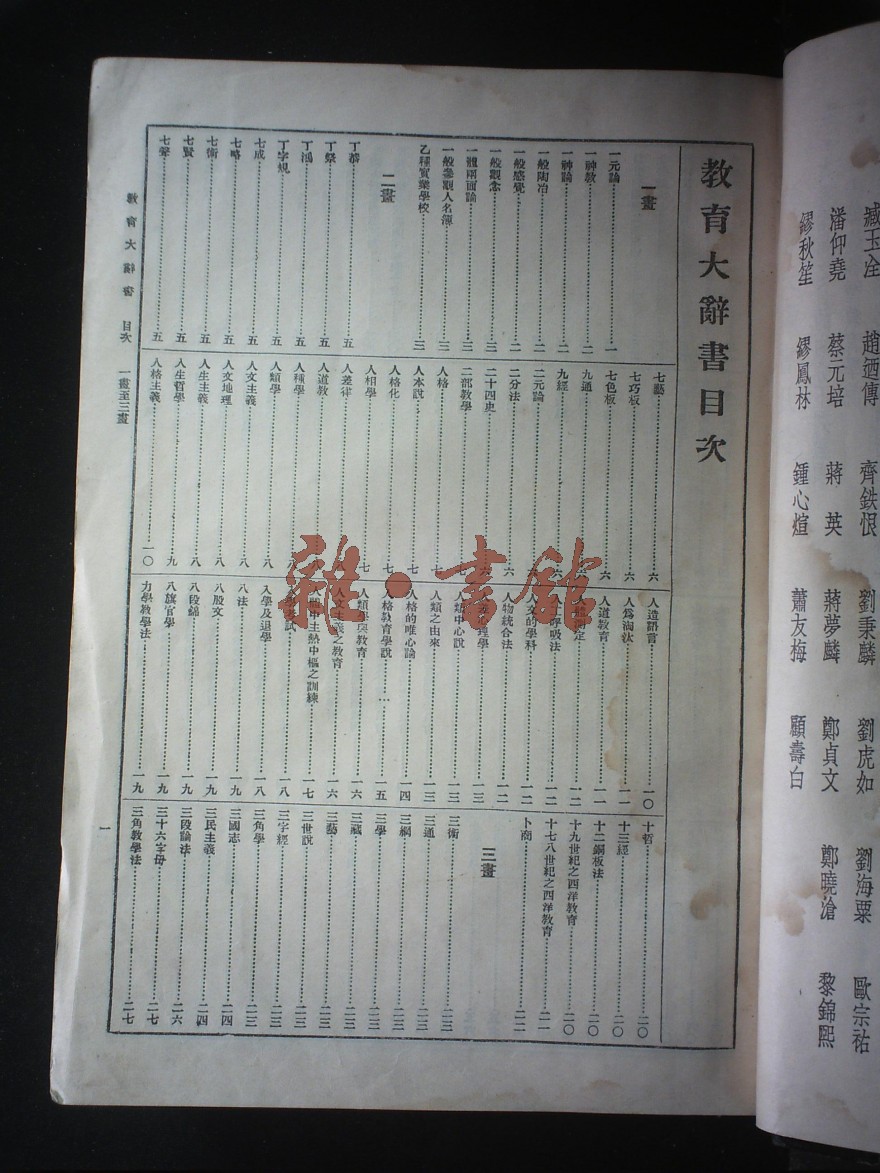 臧玉洤　趙廼傳　齊鉄恨　劉秉麟　劉虎如　劉海粟　歐宗祐
潘仰堯　蔡元培　蔣英　蔣夢麟　鄭貞文　鄭曉滄　黎錦熙
繆秋笙　繆鳳林　鍾心煊　蕭友梅　顧壽白
教育大辭書目次
一畫
一元論 一
一神教 二
一神論 二
一般陶冶 二
一般感覺 二
一般觀念 三
一體兩面論 三
一般參觀人名簿 三
乙種實業學校 三
二畫
丁韙 五
丁祭 五
丁鴻 五
丁字規 五
七成 五
七略 五
七術 五
七賢 五
七聲 五
七藝 六
七巧板 六
七色板 六
九通
九經
二元論
二分法 六
二十四史 六
二部教學 七
人格 七
人本說 七
人格化 七
人相學 七
人差律
人道教 八
人種學 八
人類學 八
人文主義 八
人文地理 八
人生主義 八
人生哲學 九
人格主義 一〇
人造語言 一〇
人為淘汰 一一
人道教育 一一
測定 一二
呼吸法 一二
人文的學科 一二
人物統合法 一二
心理學 一三
人類中心說 一三
人類之由來 一三
人格的唯心論 一四
人格教育學說 一五
人類學與教育 一六
人文主義之教育 一六
人間中主熱中樞之訓練 一七
考試 一八
入學及退學 一八
八法 一九
八股文 一九
八段錦 一九
八旗官學 一九
力學教學法 一九
十哲 二〇
十三經 二〇
十二銅板法 二〇
十九世紀之西洋教育 二〇
十七八世紀之西洋教育 二一
卜商 二二
三畫
三術 二三
三通 二三
三綱 二三
三學 二三
三藏 二三
三藝 二三
三世說 二三
三字經 二三
三角學 二三
三國志 二四
三民主義 二四
三段論法 二六
三十六字母 二七
三角教學法 二七
教育大辭書　目次　一畫至三畫
一
雜·書館